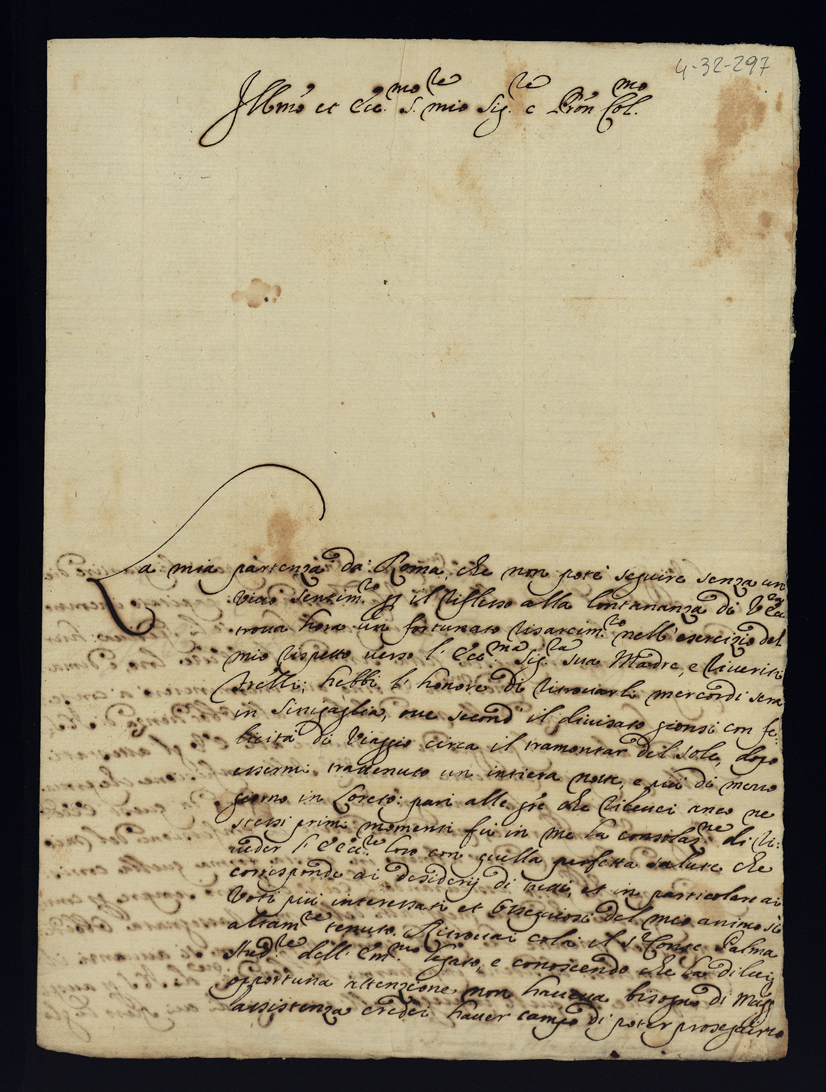 4-32-297
Illmo et Ecc.mo S.re mio Sig.re e Prôn Col.mo
La mia partenza da Roma, che non potè seguire senza un
vivo sentim.to il riflesso alla lontananza di V. Ecc.
trova hora un fortunato risarcim.to nell esercizio del
mio rispetto verso l'Ecc.ma Sig.ra sua Madre, e riveriti
fratelli; hebbi l'honore di ritrovarli mercordi sera
in Sinigaglia, ove second' il divisato gionsi con fe-
licità di viaggio circa il tramontar del sole, dopo
essermi trattenuto un intiera notte, e più di mezzo
giorno in Loreto: pari alle gre che ricevei anco ne
stessi primi momenti fù in me la consolaz.ne di ri-
veder l'Ecc.ze loro con quella perfetta salute che
corrisponde ai desiderij di tutti, et in particolare ai
voti più interessati et ossequiosi del mio animo sì
altam.te tenuto. Ritrovai colà il s.r Conte Palma
dell' Em.mo legato, e conoscendo che la di lui
opportuna attenzione non haveva bisogno di magg.
assistenza credei haver campo di poter proseguire